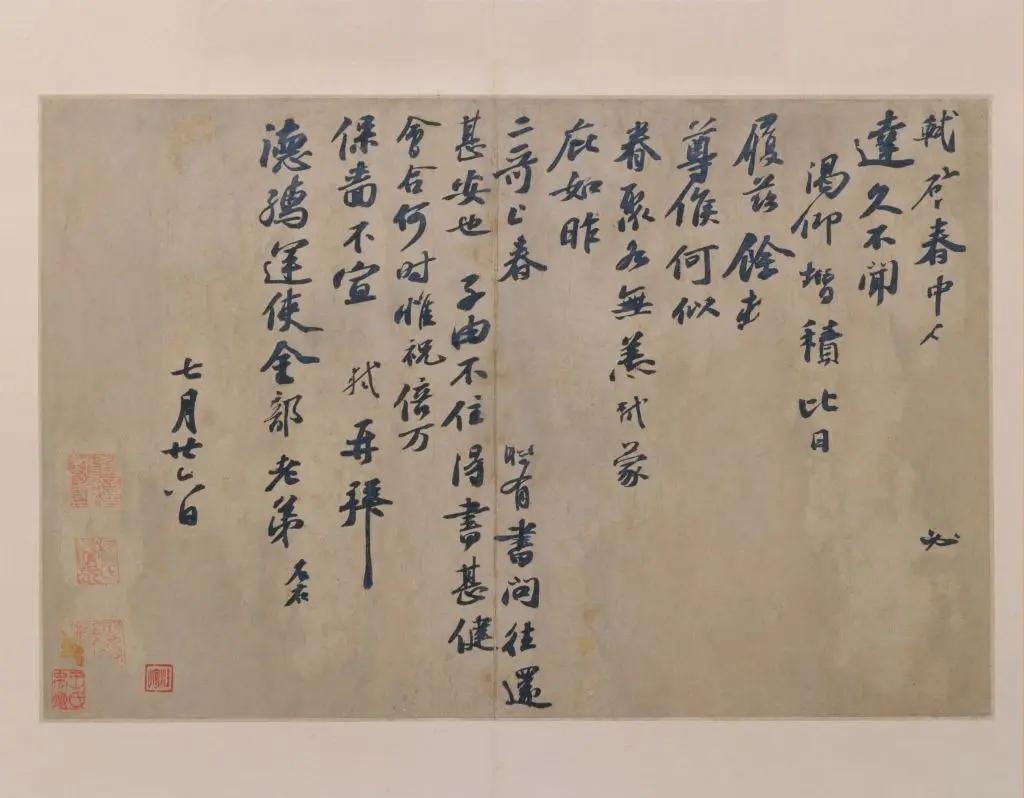 軾啓春中人必
達久不聞
渴仰增積比日
履兹餘
尊候何似
眷聚各無恙軾蒙
庇如昨
二哥上春有書問往還
甚安也子由不住得書甚健
會合何時惟祝倍万
保嗇不宣軾再拜
德孺運使金部老弟
七月廿六日